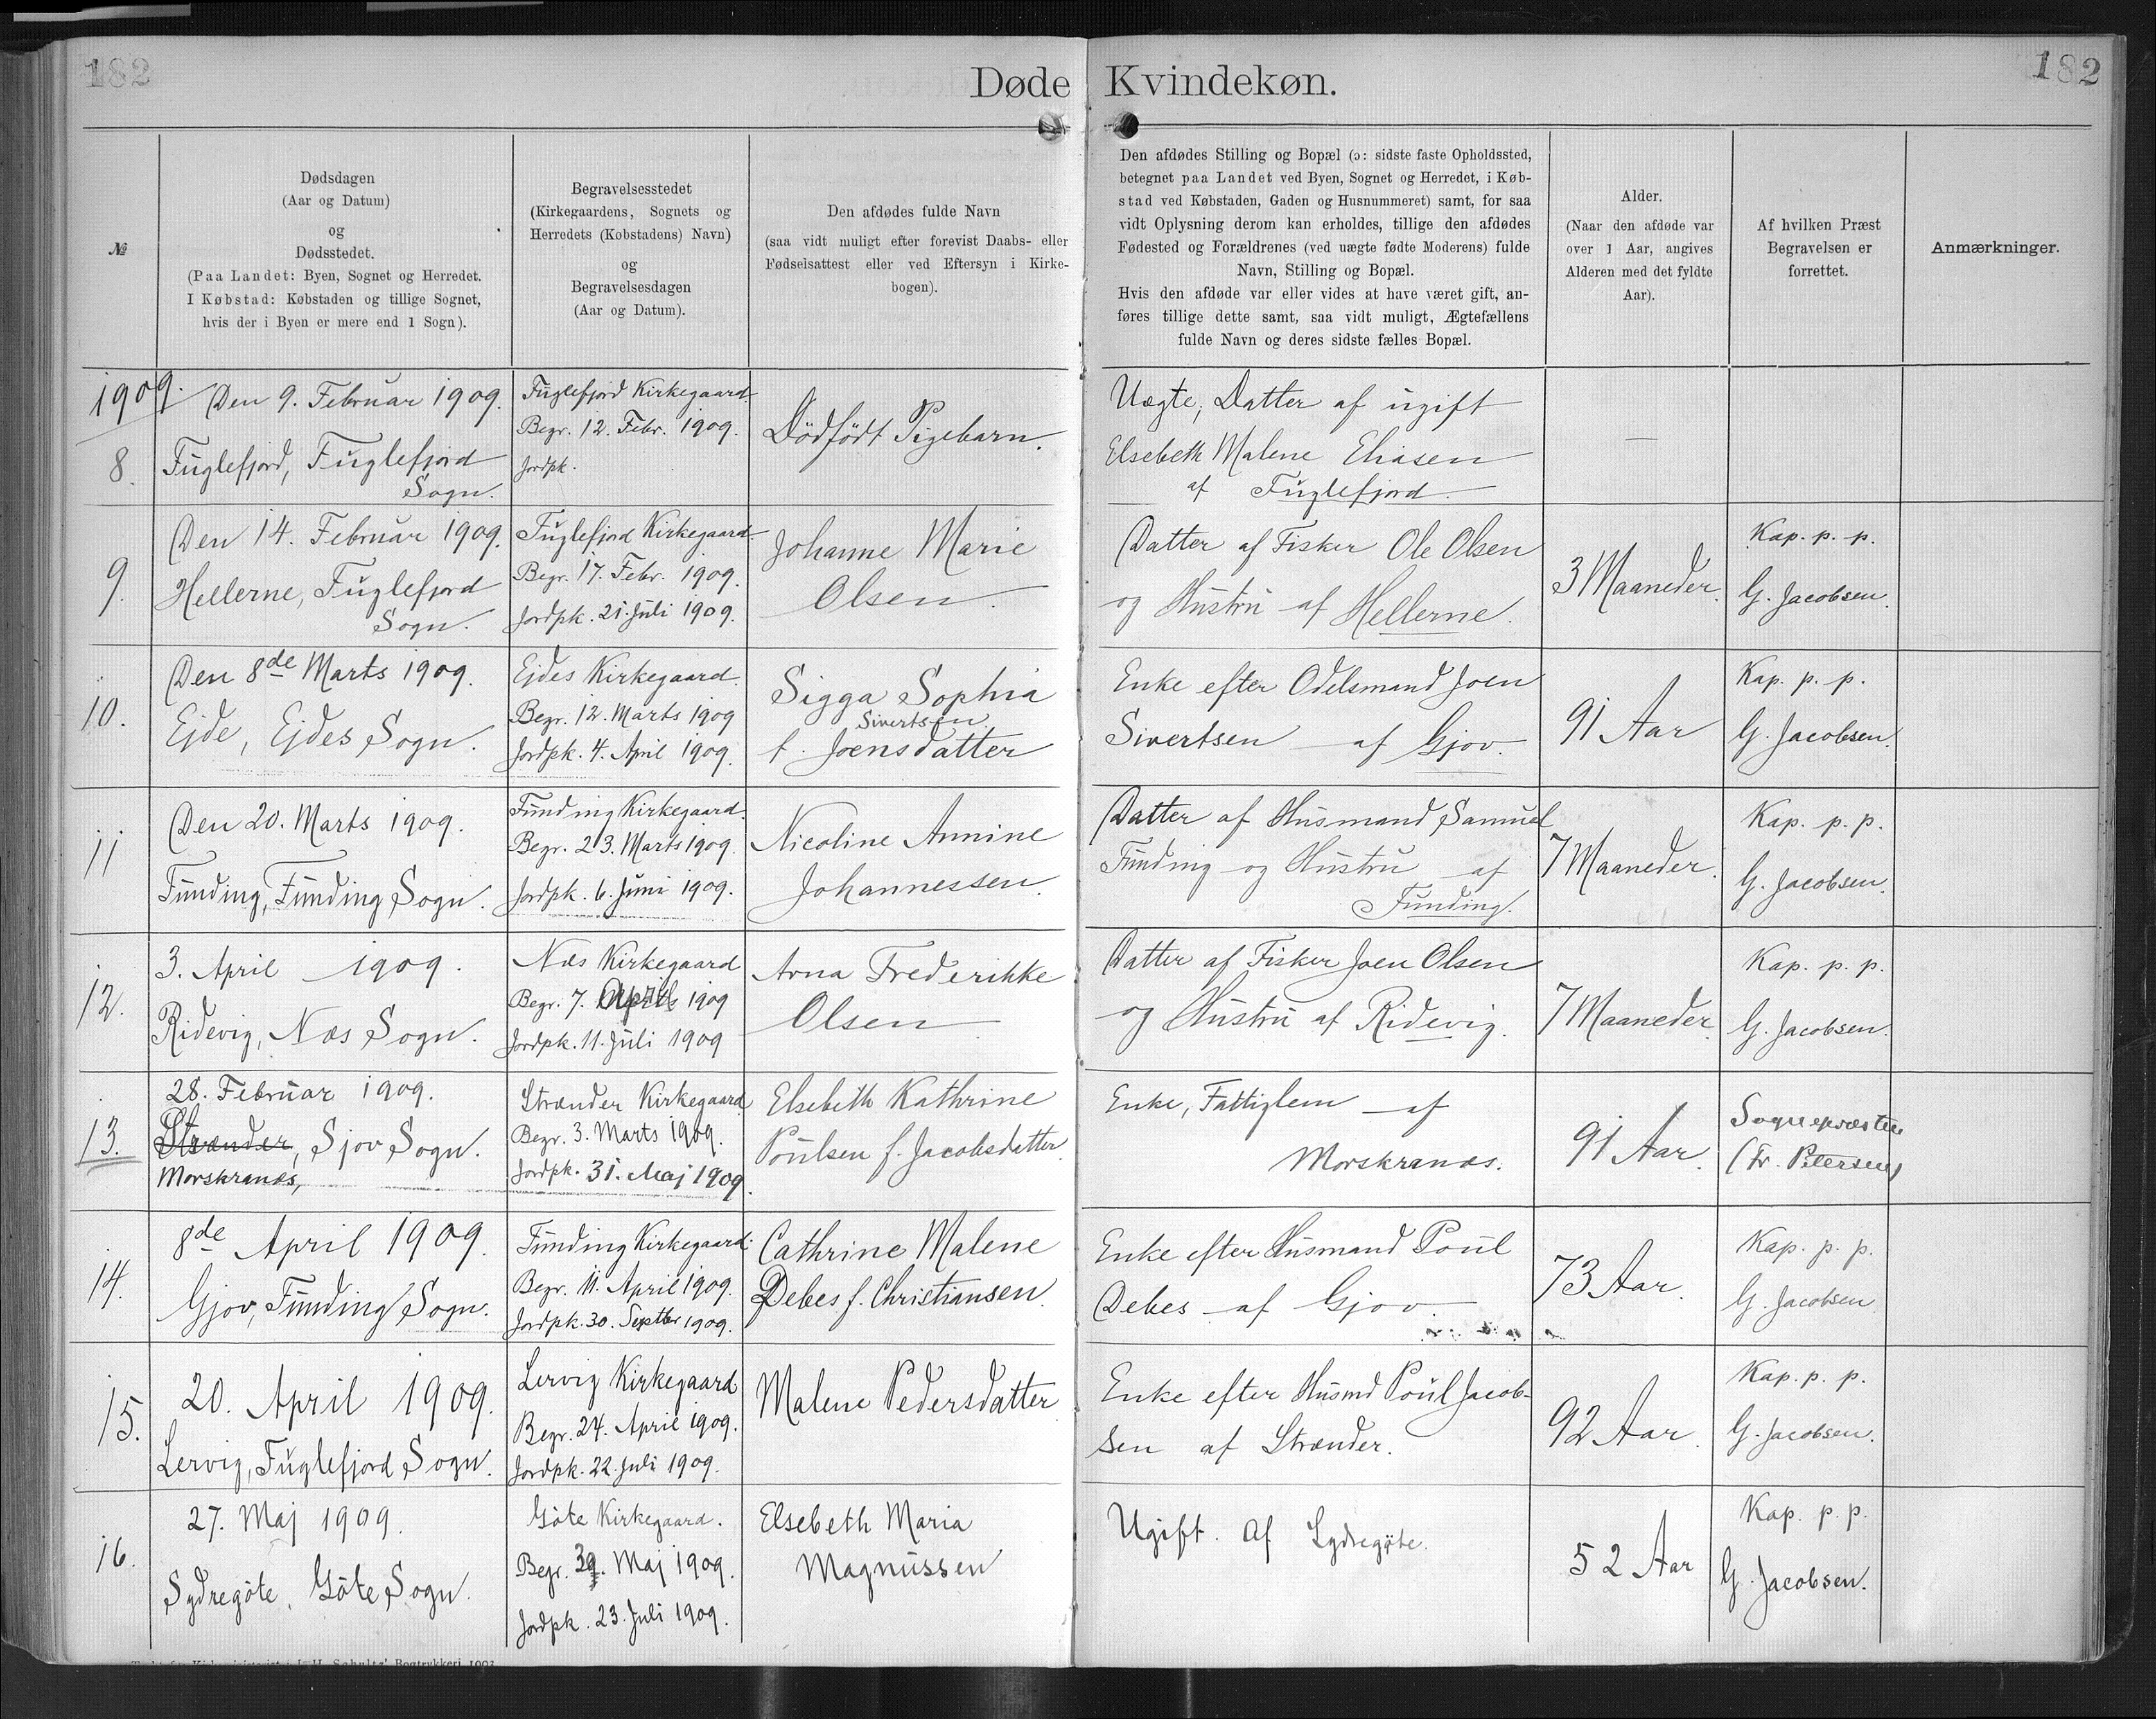 182
Døde Kvindekøn.
182
№
Dødsdagen
(Aar og Datum)
og
Dødsstedet.
(Paa Landet: Byen, Sognet og Herredet.
I Købstad: Købstaden og tillige Sognet,
hvis der i Byen er mere end 1 Sogn).
Begravelsesstedet
(Kirkegaardens, Sognets og
Herredets (Købstadens) Navn)
og
Begravelsesdagen
(Aar og Datum).
Den afdødes fulde Navn
(saa vidt muligt efter forevist Daabs- eller
Fødselsattest eller ved Eftersyn i Kirke-
bogen).
Den afdødes Stilling og Bopæl (ɔ: sidste faste Opholdssted,
betegnet paa Landet ved Byen, Sognet og Herredet, i Køb-
stad ved Købstaden, Gaden og Husnummeret) samt, for saa
vidt Oplysning derom kan erholdes, tillige den afdødes
Fødested og Forældrenes (ved uægte fødte Moderens) fulde
Navn, Stilling og Bopæl.
Hvis den afdøde var eller vides at have været gift, an-
føres tillige dette samt, saa vidt muligt, Ægtefællens
fulde Navn og deres sidste fælles Bopæl.
Alder.
(Naar den afdøde var
over 1 Aar, angives
Alderen med det fyldte
Aar).
Af hvilken Præst
Begravelsen er
forrettet.
Anmærkninger.
1909.
8.
Den 9. Februar 1909.
Fuglefjord, Fuglefjord
Sogn.
Fuglefjord Kirkegaard.
Begr. 12. Febr. 1909.
Jordpk.
Dödfödt Pigebarn.
Uægte, Datter af ugift
Elsebeth Malene Eliasen
af Fuglefjord.
—
9.
Den 14. Februar 1909.
Hellerne, Fuglefjord
Sogn.
Fuglefjord Kirkegaard.
Begr. 17. Febr. 1909.
Jordpk. 21. Juli 1909.
Johanne Marie
Olsen.
Datter af Fisker Ole Olsen
og Hustru af Hellerne.
3 Maaneder.
Kap. p. p.
G. Jacobsen.
10.
Den 8de Marts 1909.
Ejde, Ejdes Sogn.
Ejdes Kirkegaard.
Begr. 12. Marts 1909
Jordpk. 4. April 1909.
Sigga Sophia
Sivertsen
f. Joensdatter
Enke efter Odelsmand Joen
Sivertsen af Gjov.
91 Aar
Kap. p. p.
G. Jacobsen.
11
Den 20. Marts 1909.
Funding, Funding Sogn.
Funding Kirkegaard.
Begr. 23. Marts 1909.
Jordpk. 6. Juni 1909.
Nicoline Annine
Johannessen.
Datter af Husmand Samuel
Funding og Hustru af
Funding.
7 Maaneder.
Kap. p. p.
G. Jacobsen.
12.
3. April 1909.
Ridevig, Næs Sogn.
Næs Kirkegaard
Begr. 7. April 1909
Jordpk. 11. Juli 1909
Arna Frederikke
Olsen
Datter af Fisker Joen Olsen
og Hustru af Ridevig.
7 Maaneder.
Kap. p. p.
G. Jacobsen.
13.
28. Februar 1909.
Strænder, Sjov Sogn.
Morskranæs,
Strænder Kirkegaard
Begr. 3. Marts 1909.
Jordpk. 31. Maj 1909.
Elsebeth Kathrine
Poulsen f. Jacobsdatter
Enke, Fattiglem af
Morskranæs.
91 Aar.
Sognepræsten
(Fr. Petersen)
14.
8de April 1909.
Gjov, Funding Sogn.
Funding Kirkegaard.
Begr. 11. April 1909.
Jordpk. 30. Septbr 1909.
Cathrine Malene
Debes f. Christiansen.
Enke efter Husmand Poul
Debes af Gjov.
73 Aar.
Kap. p. p.
G. Jacobsen
15.
20. April 1909.
Lervig, Fuglefjord Sogn.
Lervig Kirkegaard
Begr. 24. April 1909.
Jordpk. 22. Juli 1909.
Malene Pedersdatter
Enke efter Husmd Poul Jacob-
sen af Strænder.
92 Aar.
Kap. p. p.
G. Jacobsen.
16.
27. Maj 1909.
Sydregöte, Göte Sogn.
Göte Kirkegaard.
Begr. 30. Maj 1909.
Jordpk. 23. Juli 1909.
Elsebeth Maria
Magnussen
Ugift. Af Sydregöte.
52 Aar
Kap. p. p.
G. Jacobsen.